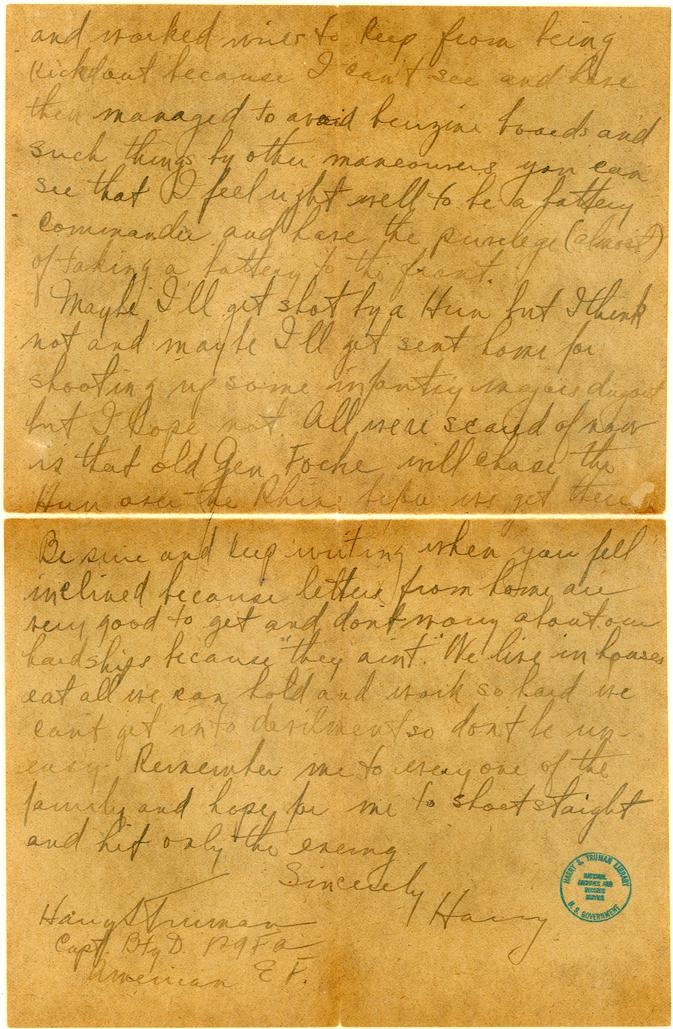 and worked wires to keep from being
kickdout because I can't see and have
then managed to avoid benzine boards and
such things by other maneouvers you can
see that I feel right well to be a battery
commander and have the privelege (almost)
of taking a battery to the front.
Maybe I'll get shot by a Hun but I think
not and maybe I'll get sent home for
shooting up some infantry majors dugout
but I hope not. All we're scared of now
is that old Gen Foche will chase the
Hun over the Rhine before we get there
Be sure and keep writing when you fell
inclined because letters from home are
very good to get and dont worry about our
hardships because "they aint." We live in houses
eat all we can hold and work so hard we
cant get into devilment so don't be un-
easy. Remember me to everyone of the
family and hope for me to shoot staight
and hit only the enemy
Sincerely
Harry
Harry S Truman
Capt. Bty D. 129 F A
American E F.
HARRY S. TRUMAN LIBRARY
NATIONAL
ARCHIVES AND
RECORDS
SERVICE
U. S. GOVERNMENT